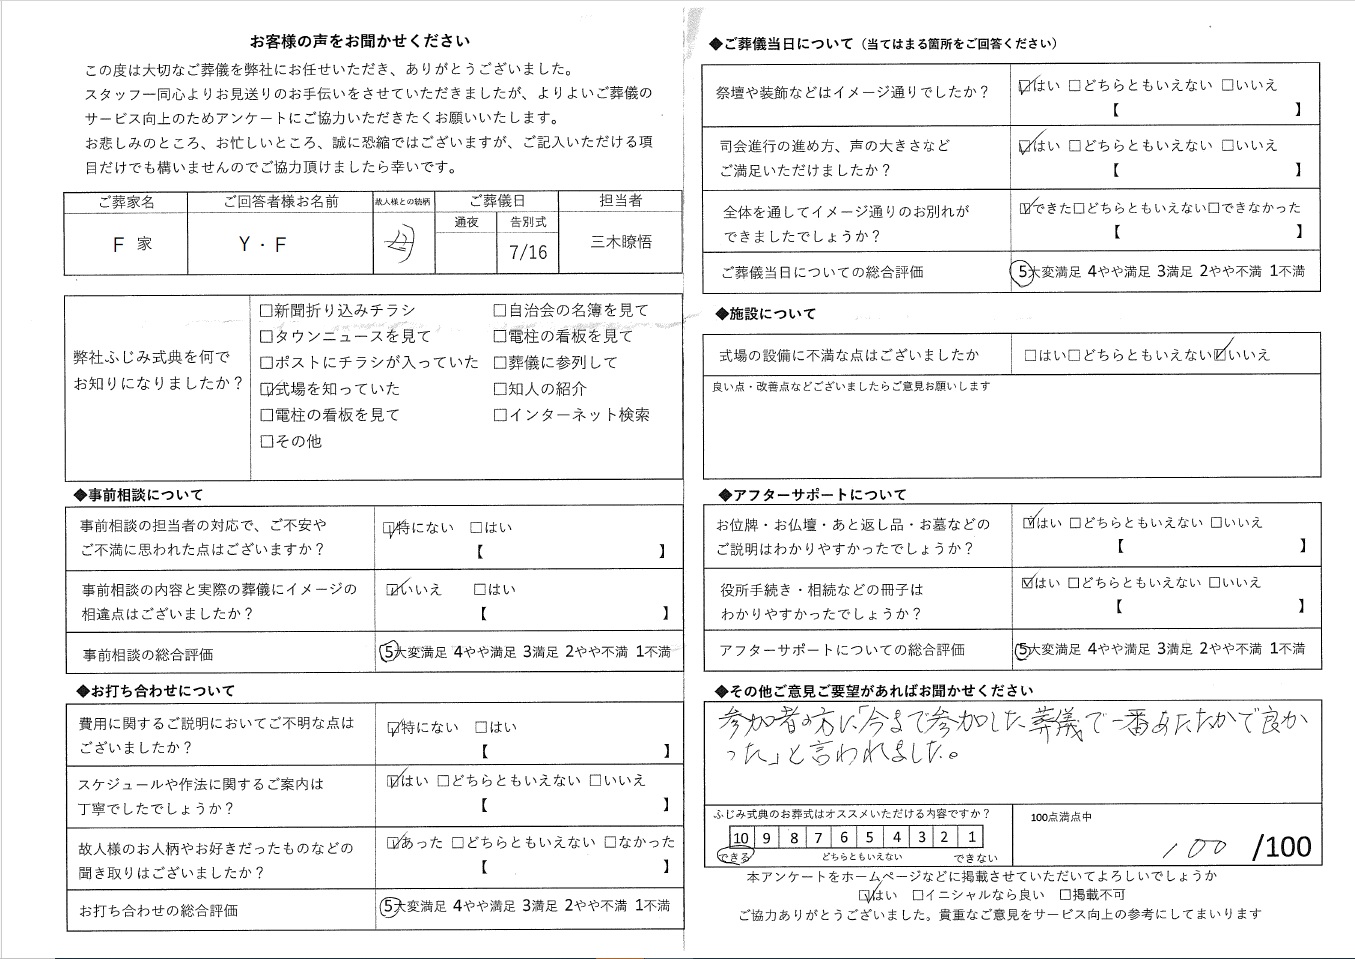 お客様の声をお聞かせください
この度は大切なご葬儀を弊社にお任せいただき、ありがとうございました。
スタッフ一同心よりお見送りのお手伝いをさせていただきましたが、よりよいご葬儀の
サービス向上のためアンケートにご協力いただきたくお願いいたします。
お悲しみのところ、お忙しいところ、誠に恐縮ではございますが、ご記入いただける項
目だけでも構いませんのでご協力頂けましたら幸いです。
ご葬家名 ご回答者様お名前 故人様との続柄 ご葬儀日 担当者
通夜 告別式
F 家 Y・F 母 7/16 三木瞭悟
弊社ふじみ式典を何で
お知りになりましたか？
□新聞折り込みチラシ □自治会の名簿を見て
□タウンニュースを見て □電柱の看板を見て
□ポストにチラシが入っていた □葬儀に参列して
☑式場を知っていた □知人の紹介
□電柱の看板を見て □インターネット検索
□その他
◆事前相談について
事前相談の担当者の対応で、ご不安や
ご不満に思われた点はございますか？
☑特にない □はい
【 】
事前相談の内容と実際の葬儀にイメージの
相違点はございましたか？
☑いいえ □はい
【 】
事前相談の総合評価 5大変満足 4やや満足 3満足 2やや不満 1不満
◆お打ち合わせについて
費用に関するご説明においてご不明な点は
ございましたか？
☑特にない □はい
【 】
スケジュールや作法に関するご案内は
丁寧でしたでしょうか？
☑はい □どちらともいえない □いいえ
【 】
故人様のお人柄やお好きだったものなどの
聞き取りはございましたか？
☑あった □どちらともいえない □なかった
【 】
お打ち合わせの総合評価 5大変満足 4やや満足 3満足 2やや不満 1不満
◆ご葬儀当日について（当てはまる箇所をご回答ください）
祭壇や装飾などはイメージ通りでしたか？
☑はい □どちらともいえない □いいえ
【 】
司会進行の進め方、声の大きさなど
ご満足いただけましたか？
☑はい □どちらともいえない □いいえ
【 】
全体を通してイメージ通りのお別れが
できましたでしょうか？
☑できた□どちらともいえない□できなかった
【 】
ご葬儀当日についての総合評価 5大変満足 4やや満足 3満足 2やや不満 1不満
◆施設について
式場の設備に不満な点はございましたか □はい□どちらともいえない☑いいえ
良い点・改善点などございましたらご意見お願いします
◆アフターサポートについて
お位牌・お仏壇・あと返し品・お墓などの
ご説明はわかりやすかったでしょうか？
☑はい □どちらともいえない □いいえ
【 】
役所手続き・相続などの冊子は
わかりやすかったでしょうか？
☑はい □どちらともいえない □いいえ
【 】
アフターサポートについての総合評価 5大変満足 4やや満足 3満足 2やや不満 1不満
◆その他ご意見ご要望があればお聞かせください
参加者の方に「今まで参加した葬儀で一番あたたかで良か
った」と言われました。
ふじみ式典のお葬式はオススメいただける内容ですか？
10 9 8 7 6 5 4 3 2 1
できる どちらともいえない できない
100点満点中
100 /100
本アンケートをホームページなどに掲載させていただいてよろしいでしょうか
☑はい □イニシャルなら良い □掲載不可
ご協力ありがとうございました。貴重なご意見をサービス向上の参考にしてまいります